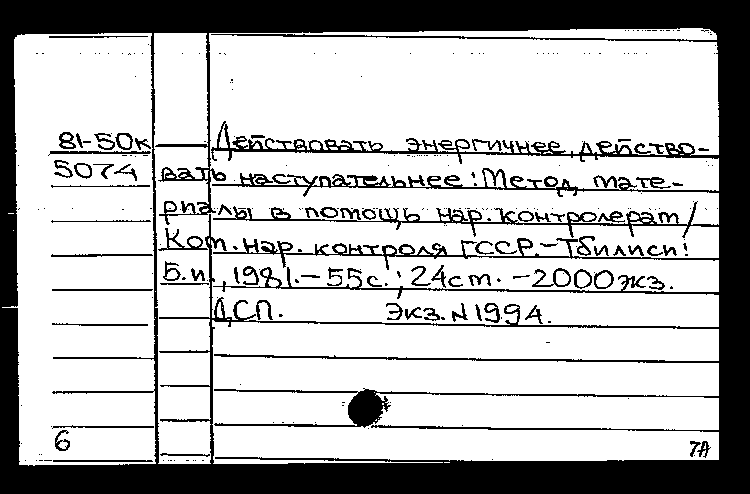 81-50к Действовать энергичнее, действо-
5074 вать наступательнее: Метод, мате-
риалы в помощь нар. контролерат/
Ком. нар. контроля ГССР.-Тбилиси:
Б.и., 1981.-55с.; 24ст. -2000экз.
ДСП. Экз. N 1994.
6 7А